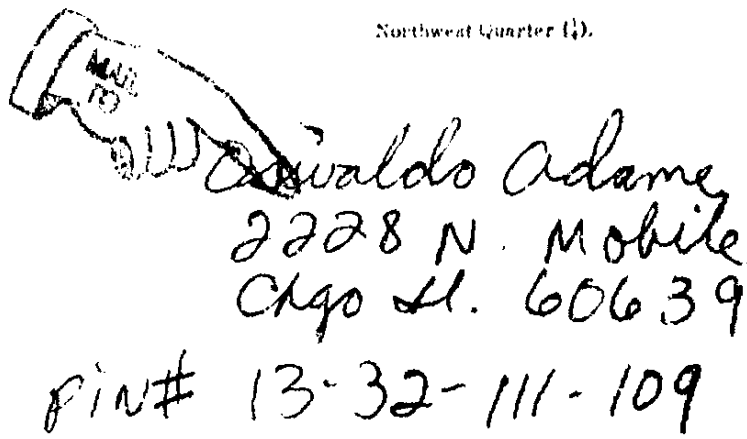 Northwest Quarter (¼).
MAIL
TO
Osivaldo Adame
2228 N. Mobile
Chgo Il. 60639
PIN# 13-32-111-109